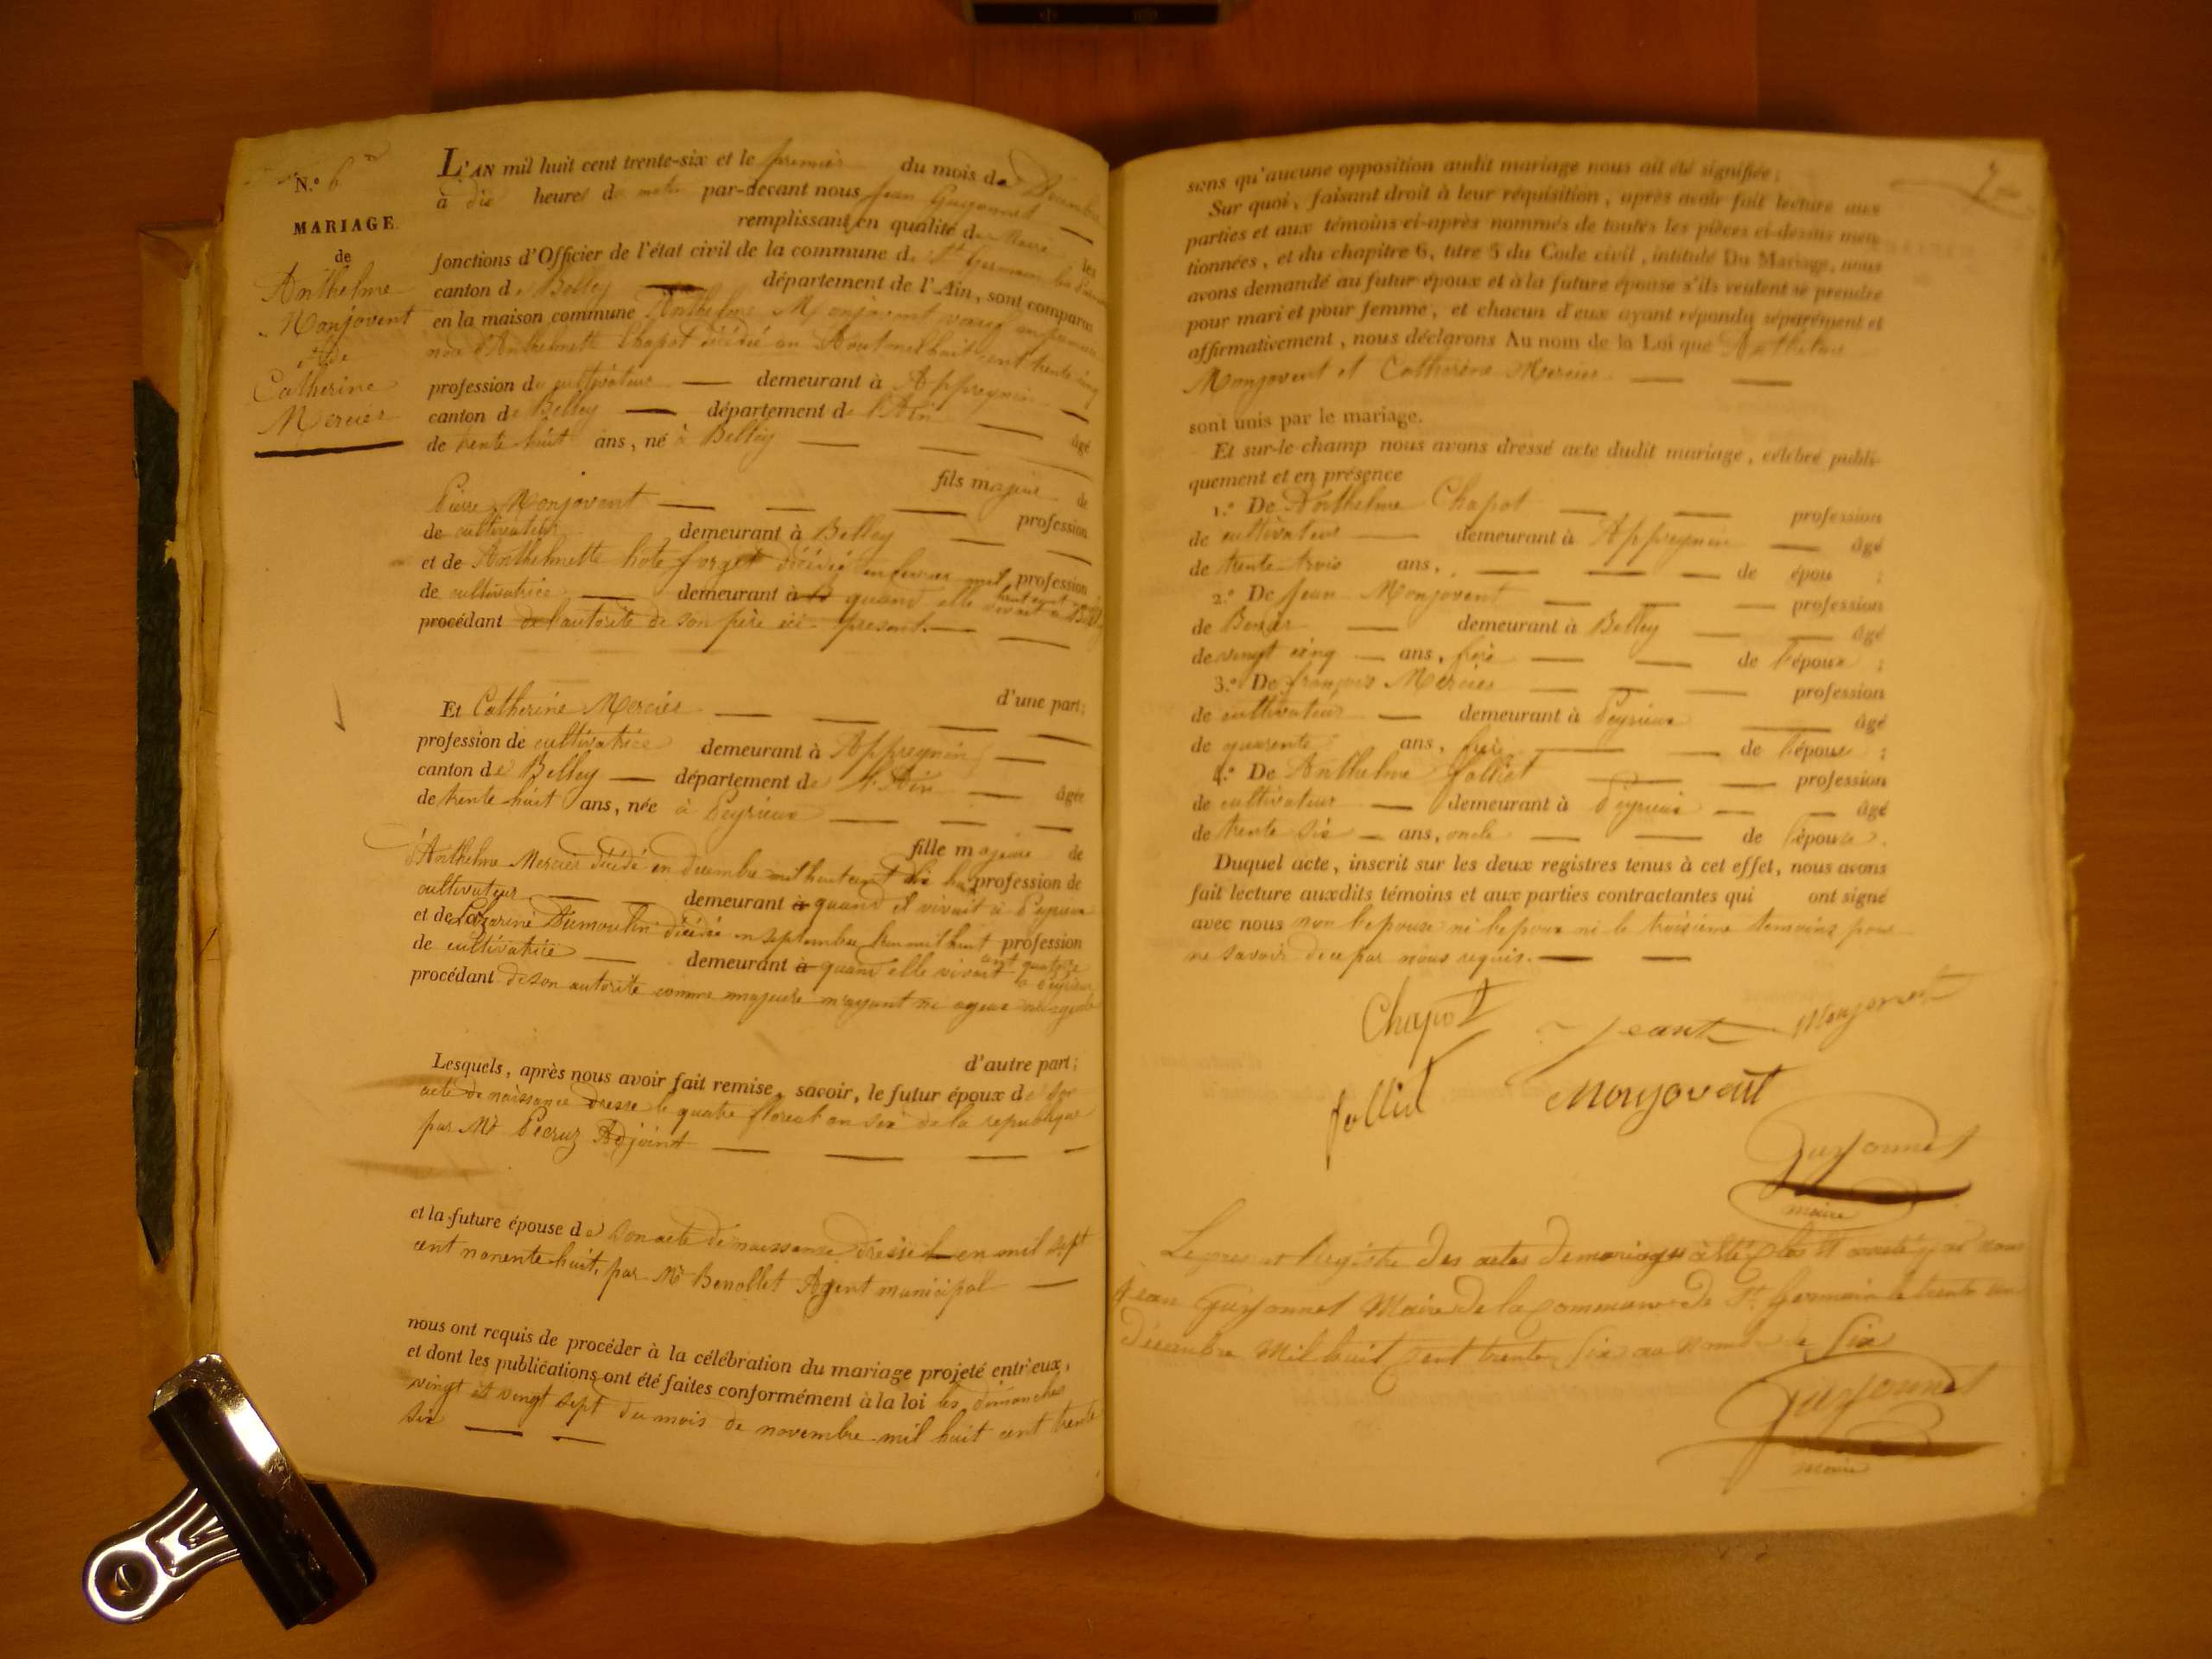 N.° 6
MARIAGE
de
Anthelme
Monjovent
et de
Catherine
Mercier
L'AN mil huit cent trente-six et le premier du mois de Decembre
à dix heures du matin par-devant nous Jean Guyonnet
remplissant en qualité de Maire les
fonctions d'Officier de l'état civil de la commune de St Germain les
canton de Belley département de l'Ain, sont comparus
en la maison commune Anthelme Monjovent veuf
d'Anthelmette Chapot décédée en Aout mil huit cent trente cinq
profession de cultivateur demeurant à Appregnin
canton de Belley département de l'Ain âgé
de trente huit ans, né à Belley
fils majeur de
Pierre Monjovent profession
de cultivateur demeurant à Belley
et de Anthelmette hote forget décédée en mil profession
de cultivatrice demeurant à quand elle vivait à
procédant de l'autorité de son père ici present.
d'une part;
Et Catherine Mercier
profession de cultivatrice demeurant à Appregnin
canton de Belley département de l'Ain âgée
de trente huit ans, née à Peyrieux
fille majeure de
d'Anthelme Mercier décédé en decembre mil huit cent dix huit profession de
cultivateur demeurant à quand il vivait à Peyrieux
et de Lazarine Dumoulin décédée en septembre mil huit profession
cent quatorze
de cultivatrice demeurant à quand elle vivait à Peyrieux
procédant de son autorité comme majeure n'ayant ni ayeux ni ayeule
d'autre part;
Lesquels, après nous avoir fait remise, savoir, le futur époux de son
acte de naissance dressé le quatre floreal an six de la republique
par Mr Pecruz Adjoint
et la future épouse de son acte de naissance dressé en mil sept
cent nonente huit, par Mr Benollet Agent municipal
nous ont requis de procéder à la célébration du mariage projeté entr'eux,
et dont les publications ont été faites conformément à la loi les dimanches
vingt et vingt sept du mois de novembre mil huit cent trente
six
sans qu'aucune opposition audit mariage nous ait été signifiée;
Sur quoi, faisant droit à leur réquisition, après avoir fait lecture aux
parties et aux témoins ci-après nommés de toutes les pièces ci-dessus men-
tionnées, et du chapitre 6, titre 5 du Code civil, intitulé Du Mariage, nous
avons demandé au futur époux et à la future épouse s'ils veulent se prendre
pour mari et pour femme, et chacun d'eux ayant répondu séparément et
affirmativement, nous déclarons Au nom de la Loi que Anthelme
Monjovent et Catherine Mercier
sont unis par le mariage.
Et sur-le-champ nous avons dressé acte dudit mariage, célébré publi-
quement et en présence
1.° De Anthelme Chapot profession
de cultivateur demeurant à Appregnin âgé
de trente trois ans, de épou ;
2.° De Jean Monjovent profession
de demeurant à Belley âgé
de vingt cinq ans, frère de l'époux ;
3.° De françois Mercier profession
de cultivateur demeurant à Peyrieux âgé
de quarente ans, frère de l'épouse ;
4.° De Anthelme folliet profession
de cultivateur demeurant à Peyrieux âgé
de trente six ans, oncle de l'épouse.
Duquel acte, inscrit sur les deux registres tenus à cet effet, nous avons
fait lecture auxdits témoins et aux parties contractantes qui ont signé
avec nous non l'epouse ni l'epoux ni le troisième temoins pour
ne savoir de ce par nous requis.
Chapot Jean Monjovent
folliet Monjovent
Guyonnet
maire
Le present Registre des actes de mariages à été clos et arreté par nous
Jean Guyonnet Maire de la commune de St Germain le trente un
Décembre Mil huit Cent trente Six au nombre de Six
Guyonnet
maire